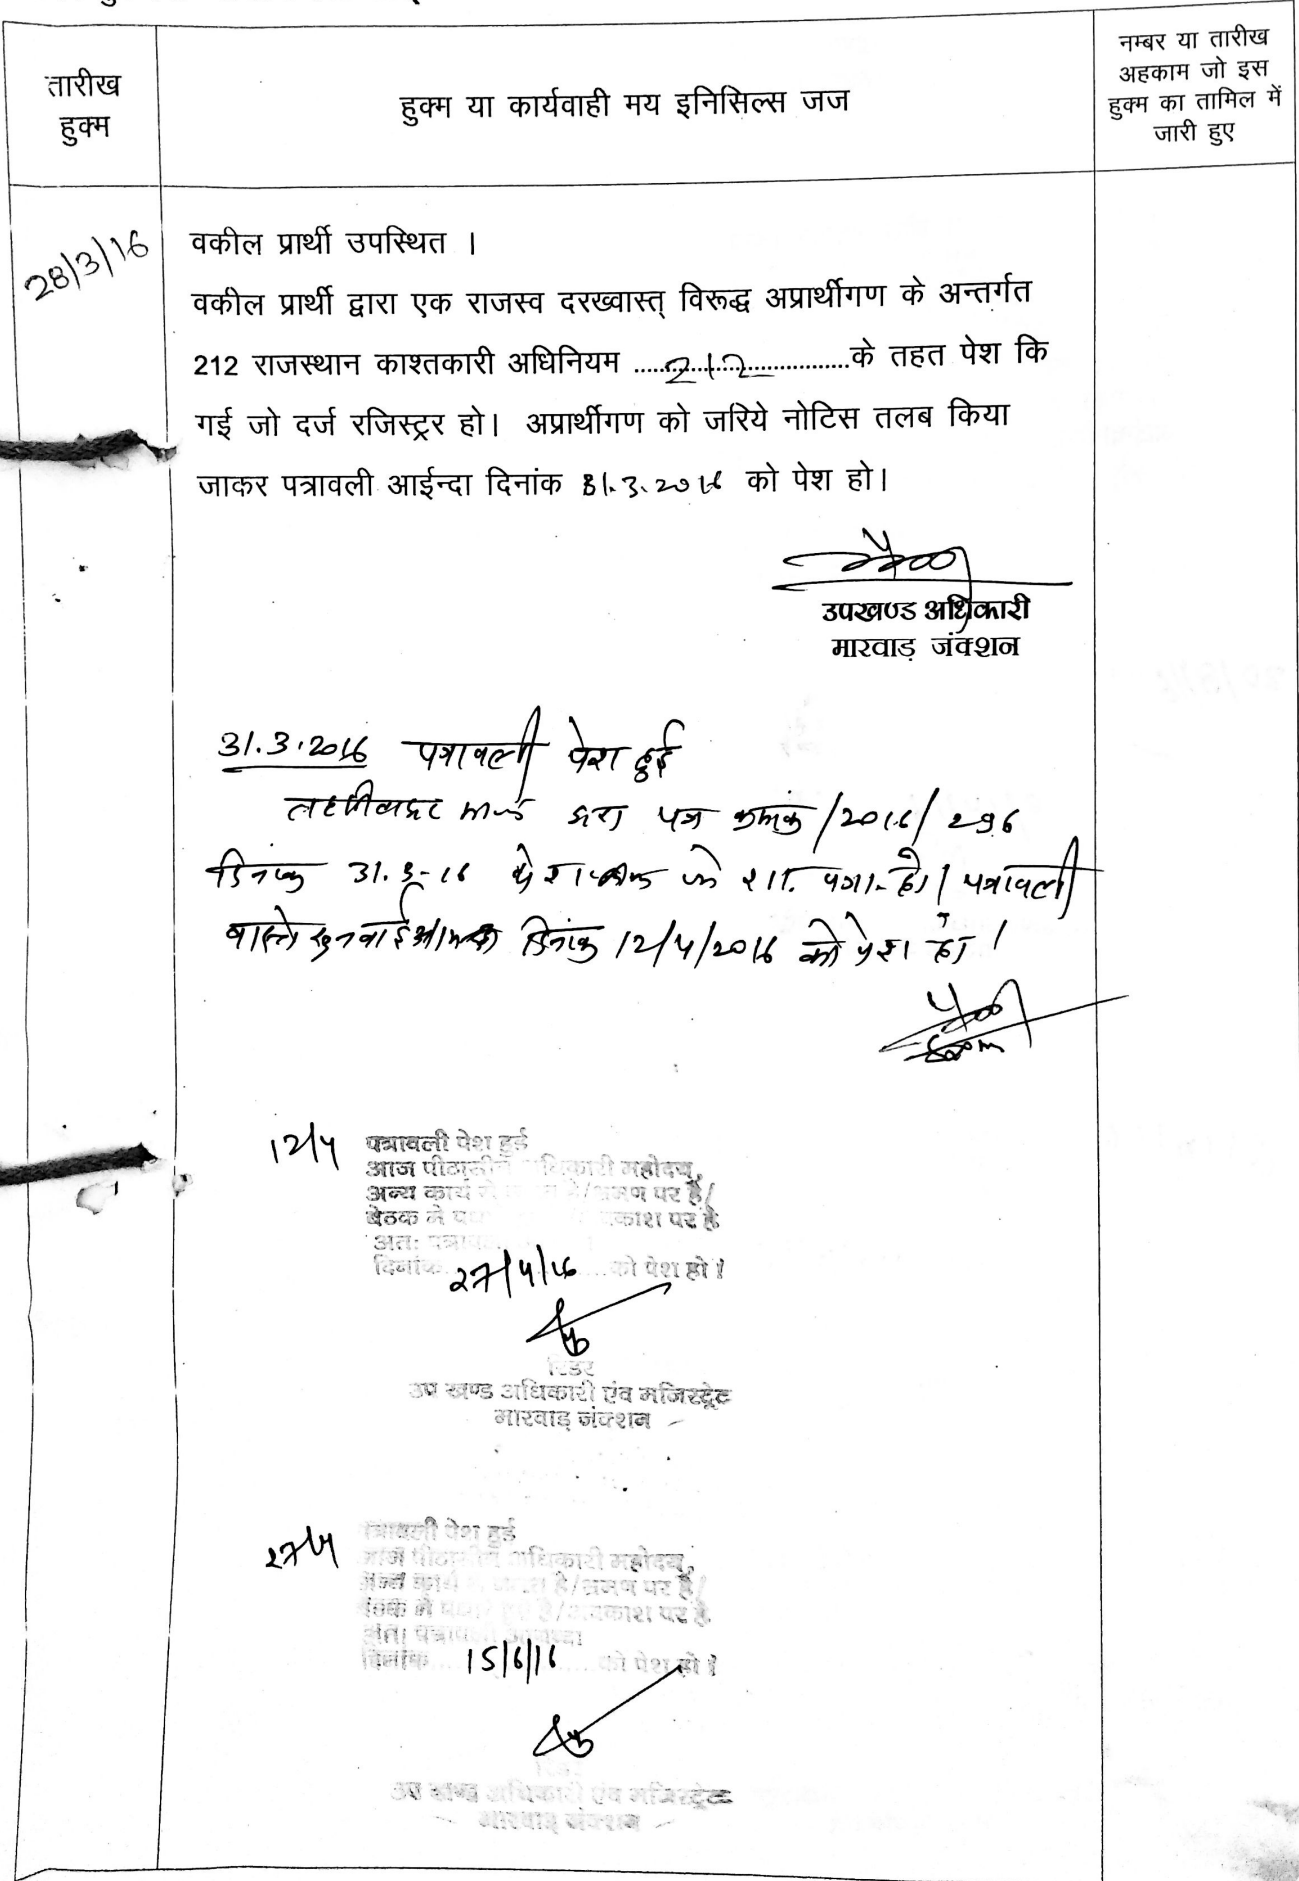 तारीख
हुक्म
हुक्म या कार्यवाही मय इनिसिल्स जज
नम्बर या तारीख
अहकाम जो इस
हुक्म का तामिल में
जारी हुए
28/3/16
वकील प्रार्थी उपस्थित ।
वकील प्रार्थी द्वारा एक राजस्व दरख्वास्त् विरूद्ध अप्रार्थीगण के अन्तर्गत
212 राजस्थान काश्तकारी अधिनियम .....212.....के तहत पेश कि
गई जो दर्ज रजिस्ट्रर हो। अप्रार्थीगण को जरिये नोटिस तलब किया
जाकर पत्रावली आईन्दा दिनांक 31.3.2016 को पेश हो।
उपखण्ड अधिकारी
मारवाड़ जंक्शन
31.3.2016 पत्रावली पेश हुई
पत्र क्रमांक /2016/ 296
दिनांक 31.3-16 पत्रावली
वास्ते सुनवाई दिनांक 12/4/2016 को पेश हो ।
12/4 पत्रावली पेश हुई
आज पीठासीन अधिकारी महोदय,
अन्य कार्य में है/भ्रमण पर है/
बैठक में अवकाश पर है
अतः
दिनांक 27/4/16 को पेश हो ।
रिडर
उप खण्ड अधिकारी एंव मजिस्ट्रेट
मारवाड़ जंक्शन
27/4 पत्रावली पेश हुई
आज पीठासीन अधिकारी महोदय,
अन्य कार्य में है/भ्रमण पर है/
बैठक में पधारे हुए है/अवकाश पर है
अतः पत्रावली आयन्दा
दिनांक 15/6/16 को पेश हो ।
उप खण्ड अधिकारी एंव मजिस्ट्रेट
मारवाड़ जंक्शन